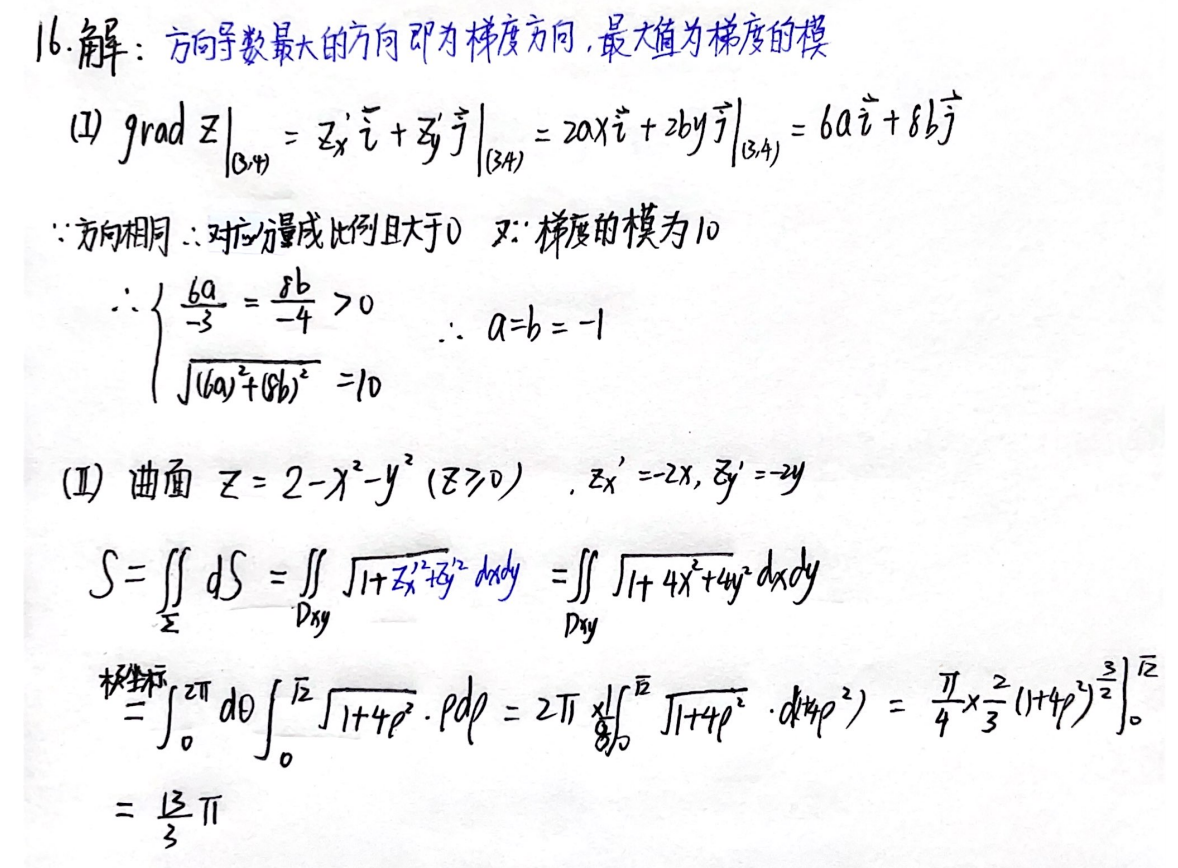 16.解：方向导数最大的方向即为梯度方向，最大值为梯度的模
(I) grad z|₍₃,₄₎ = zx′ i⃗ + zy′ j⃗ |₍₃,₄₎ = 2ax i⃗ + 2by j⃗ |₍₃,₄₎ = 6a i⃗ + 8b j⃗
∵方向相同 ∴对应分量成比例且大于0 又∵梯度的模为10
∴ { 6a/-3 = 8b/-4 > 0
√((6a)²+(8b)²) = 10 ∴ a=b=-1
(II) 曲面 z = 2-x²-y² (z≥0) . zx′=-2x, zy′=-2y
S = ∬_Σ dS = ∬_Dxy √(1+zx′²+zy′²) dxdy = ∬_Dxy √(1+4x²+4y²) dxdy
极坐标 = ∫₀^2π dθ ∫₀^√2 √(1+4ρ²) · ρdρ = 2π × 1/8 ∫₀^√2 √(1+4ρ²) · d(1+4ρ²) = π/4 × 2/3 (1+4ρ²)^(3/2) |₀^√2
= 13/3 π